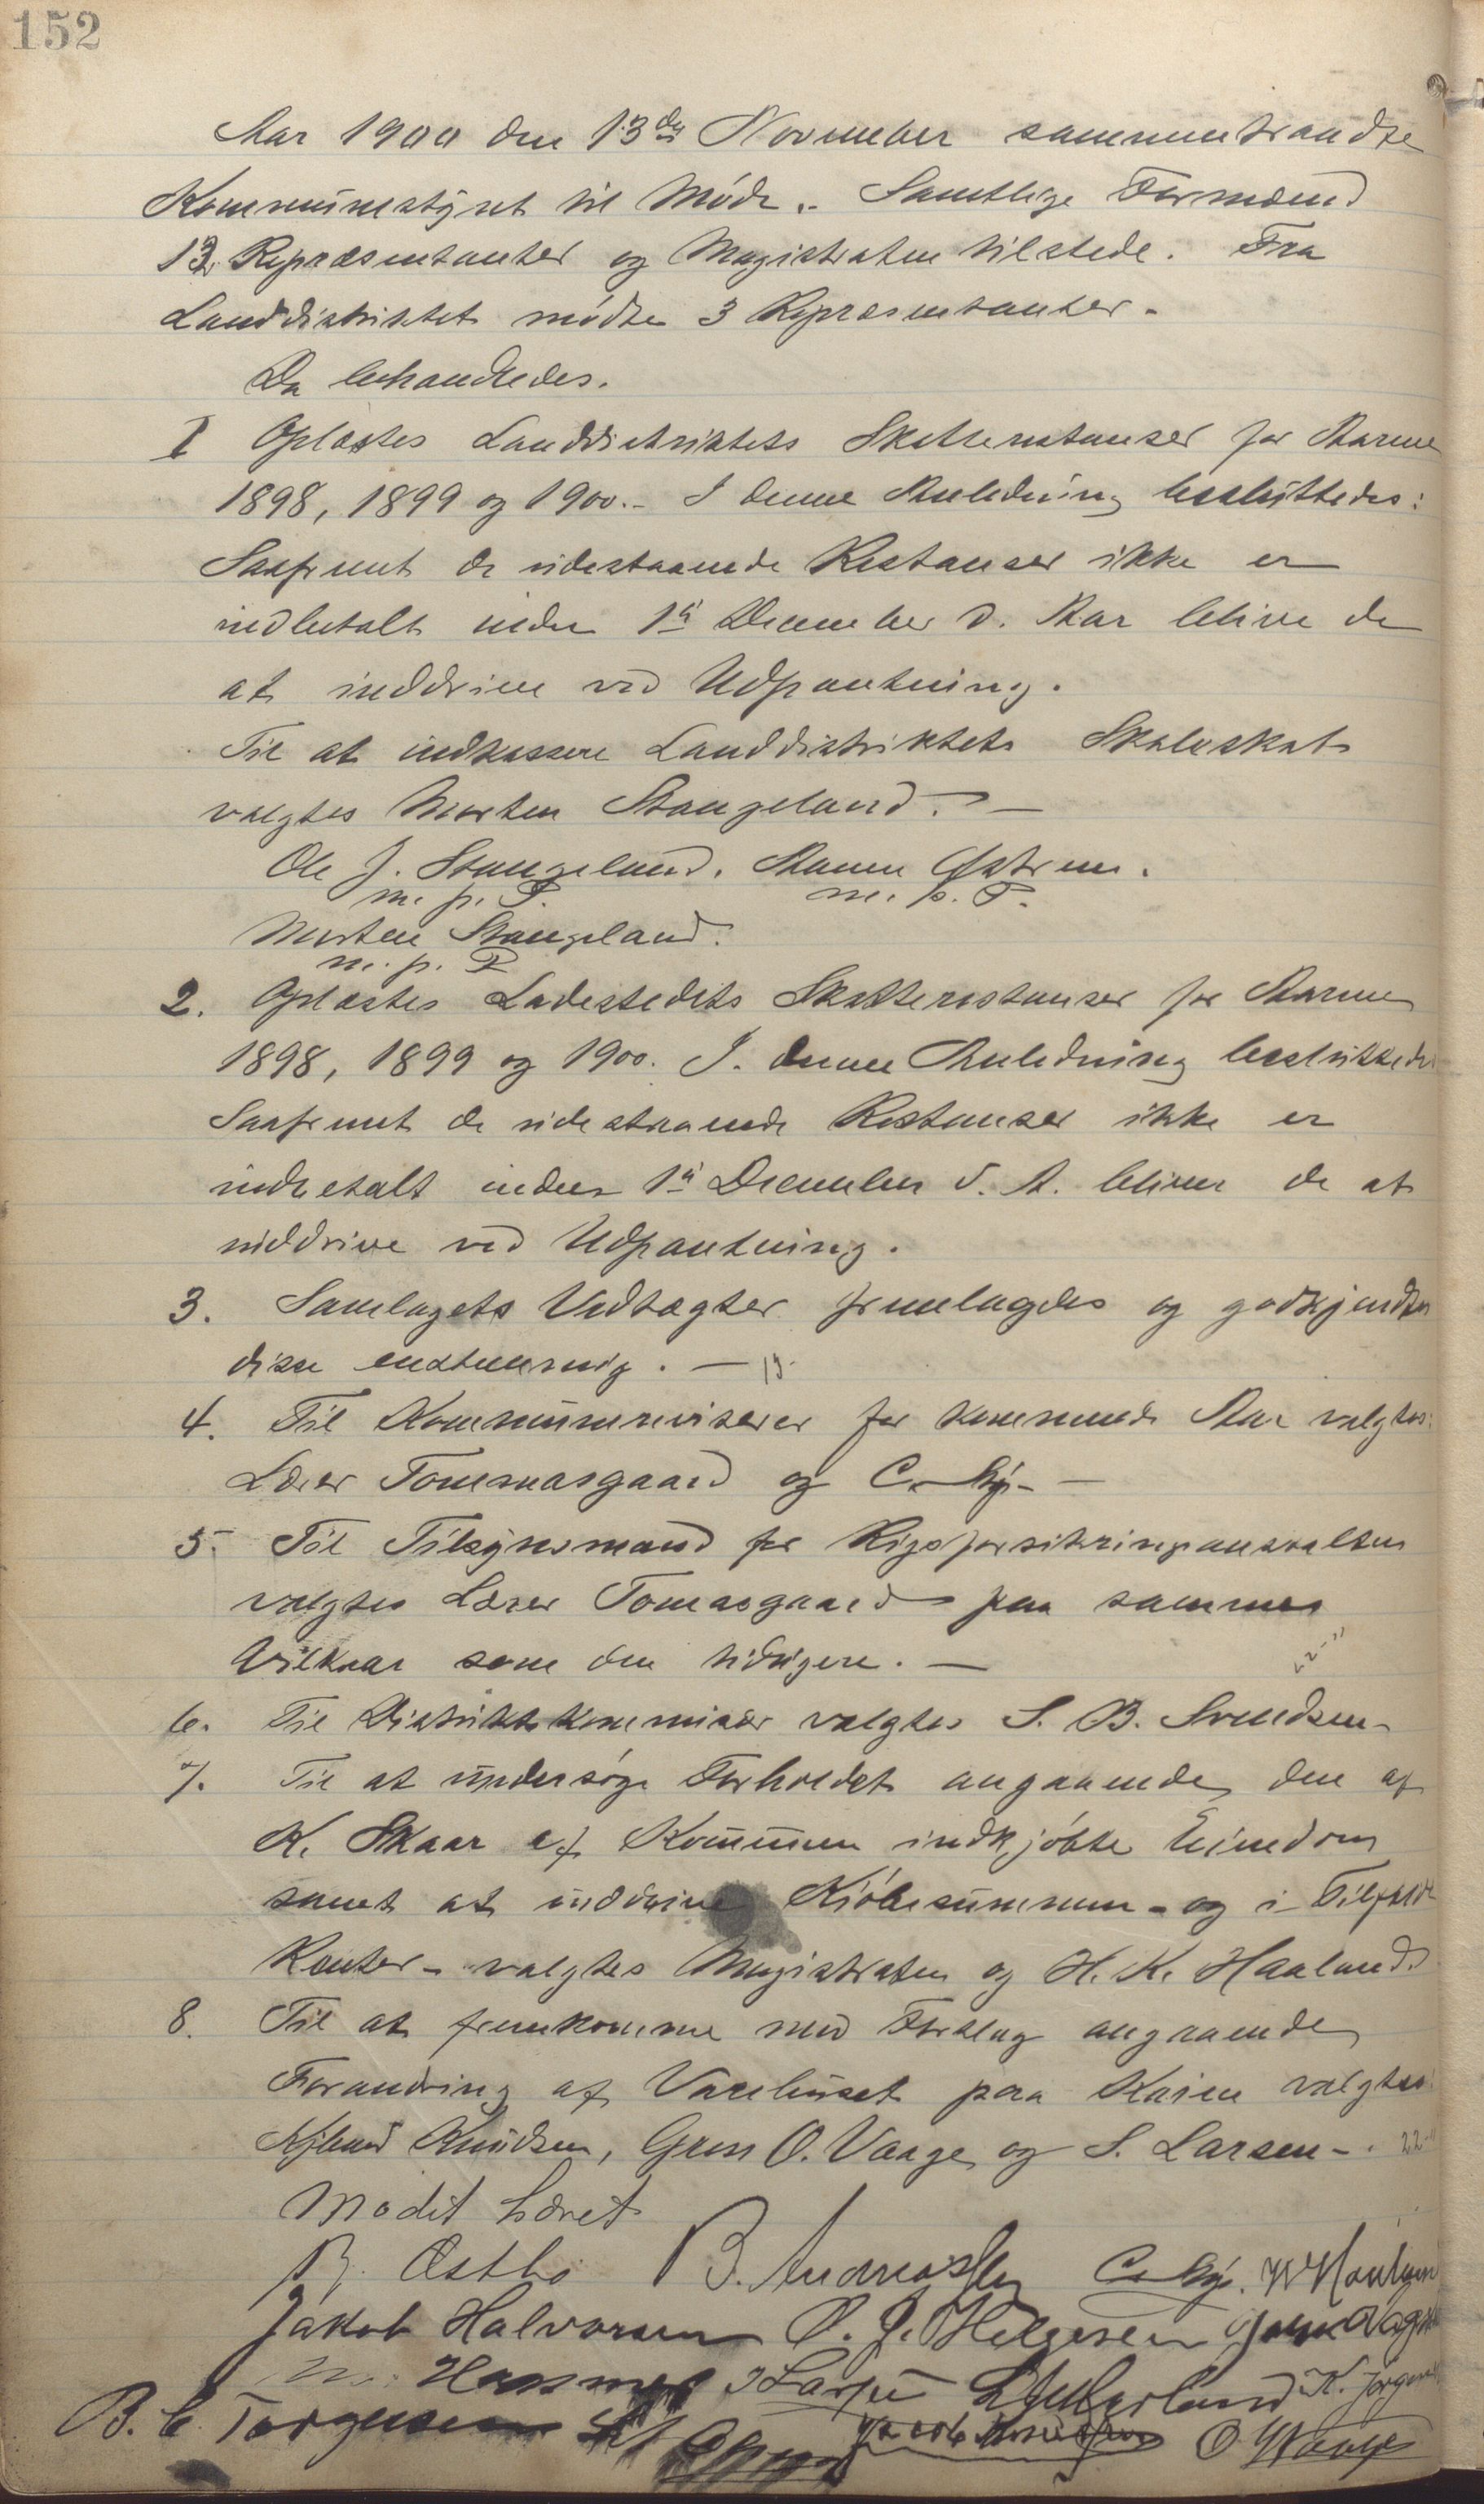 152
Aar 1900 den 13de November sammentraadte
Kommunestyret til Møde. Samtlige Formænd
13 Repræsentanter og Magistraten tilstede. Fra
Landdistriktet mødte 3 Repræsentanter.
Da behandledes.
I Oplæstes Landdistriktets Skatterestanser for Aarene
1898, 1899 og 1900.- I denne Anledning besluttedes:
Saafremt de udestaaende Restanser ikke er
indbetalt inden 1ste December d. Aar blive de
at inddrive ved Udpantning.
Til at indkassere Landdistriktets Skoleskat
valgtes Morten Stangeland. —
Ole J. Stangeland. Aanen Østrem.
m. p. P. m. p. P.
Morten Stangeland.
m. p. P
2. Oplæstes Ladestedets Skatterestanser for Aarene
1898, 1899 og 1900. I. denne Anledning besluttedes
Saafremt de udestaaende Restanser ikke er
indbetalt inden 1ste December d. A. bliver de at
inddrive ved Udpantning.
3. Samlagets Vedtægter fremlagdes og godkjendtes
disse enstemmig. —
4. Til Kommunerevisorer for kommende Aar valgtes:
Lærer Tommasgaard og C. —
5. Til Tilsynsmand for Rigsforsikringsanstalten
valgtes Lærer Tomasgaard paa samme
Vilkaar som den tidligere. —
6. Til Distriktskommisær valgtes S. B. Svendsen.
7. Til at undersøge Forholdet angaaende den af
K. Skaar af Kommunen indkjøbte Eiendom
samt at inddrive Kjøbesummen - og i Tilfælde
Renter - valgtes Magistraten og H. K. Haaland.
8. Til at fremkomme med Forslag angaaende
Forandring af Varehuset paa Kaien valgtes
Knudsen, Gens O. Vaage og S. Larsen -. 22-
Mødet hævet
B. Østbø B. C. W
Jakob Halvorsen O. J. Helgesen
Larsen K. Jørgen
B. C. Torgersen Jacob Knudsen O Waage